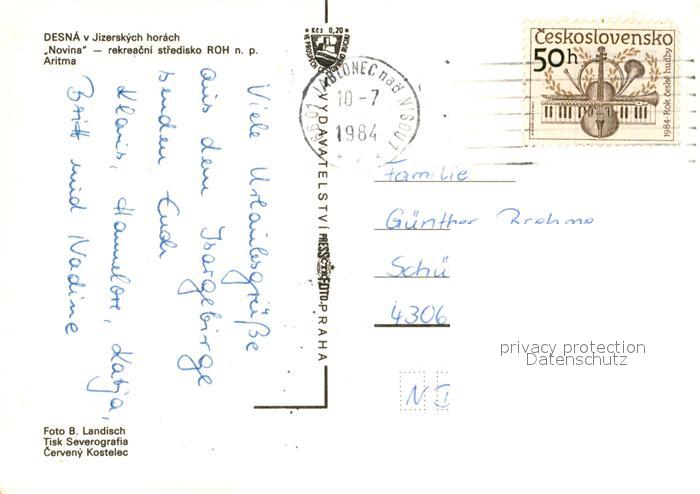 DESNÁ v Jizerských horách
„Novina" — rekreační středisko ROH n. p.
Aritma
Viele Urlaubsgrüße
aus dem Isargebirge
senden Euch
Klaus, Hannelore, Katja,
Britt und Nadine
Foto B. Landisch
Tisk Severografia
Červený Kostelec
Kčs 0,20
VYDAVATELSTVÍ PRESSFOTO PRAHA
JABLONEC nad NISOU 1
10-7
1984
Československo
50h
1984 · Rok české hudby
Familie
Günther Brehme
Schü
4306
privacy protection
Datenschutz